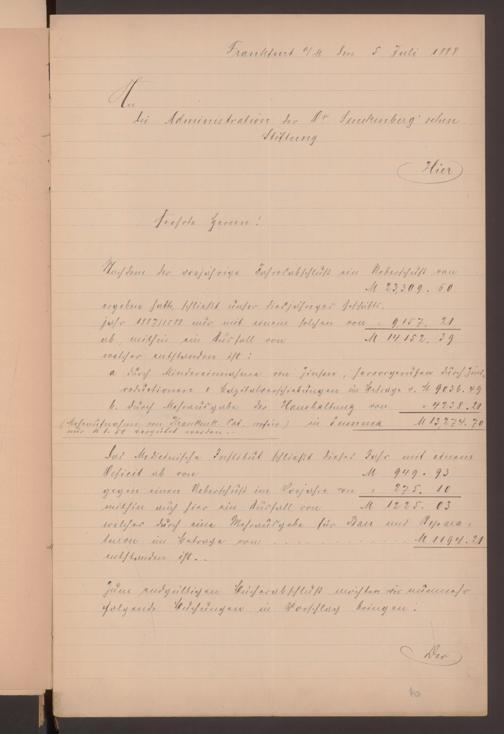 Frankfurt a/M den 5 Juli 1888
An
die Administration der Dr Senckenberg'schen
Stiftung
Hier
Geehrte Herren!
Nachdem der vorjährige Jahresabschluß ein Ueberschuß von
M 23,309. 60
ergeben hatte schließt unser diesjähriges Geschäfts-
jahr 1887/1888 nur mit einem solchen von " 9,157. 21
ab, mithin ein Ausfall von M 14,152. 39
welcher entstanden ist:
a durch Mindereinnahme von Zinsen, hervorgerufen durch Zins-
reductionen & Capitalverschiebungen im Betrage v. M 9036. 49
b. durch Mehrausgabe der Haushaltung von " 4238. 21
in summa M 13,274. 70
Das Medicinische Institut schließt dieses Jahr mit einem
Deficit ab von M 949. 93
gegen einen Ueberschuß im Vorjahre von " 275. 10
mithin auch hier ein Ausfall von M 1225. 03
welcher durch eine Mehrausgabe für Bau und Repara-
turen im Betrage von M 1194. 21
entstanden ist.
Zum endgültigen Bücherabschluß möchten wir nunmehr
folgende Buchungen in Vorschlag bringen:
Der